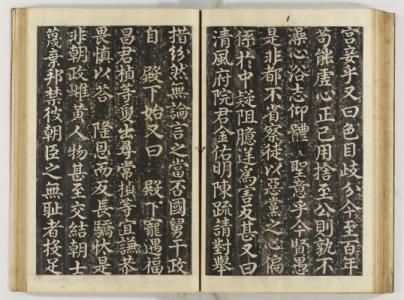 宮妾乎又曰色目歧分今至百年
苟能虛心正己用捨至公則孰不
滌心洽志仰體 聖意乎今賢愚
是非都不省察徒以惡黨之心偏
係於中疑阻臆逆爲害反甚又曰
清風府院君金佑明陳疏請對擧
措紛然無論言之當否國舅干政
自 殿下始又曰 殿下寵遇福
昌君楨等異出尋常楨等宜謙恭
畏愼以答 隆恩而反長驕怢是
非朝政雌黃人物甚至交結朝士
蔑棄邦禁彼朝臣之無恥者投足